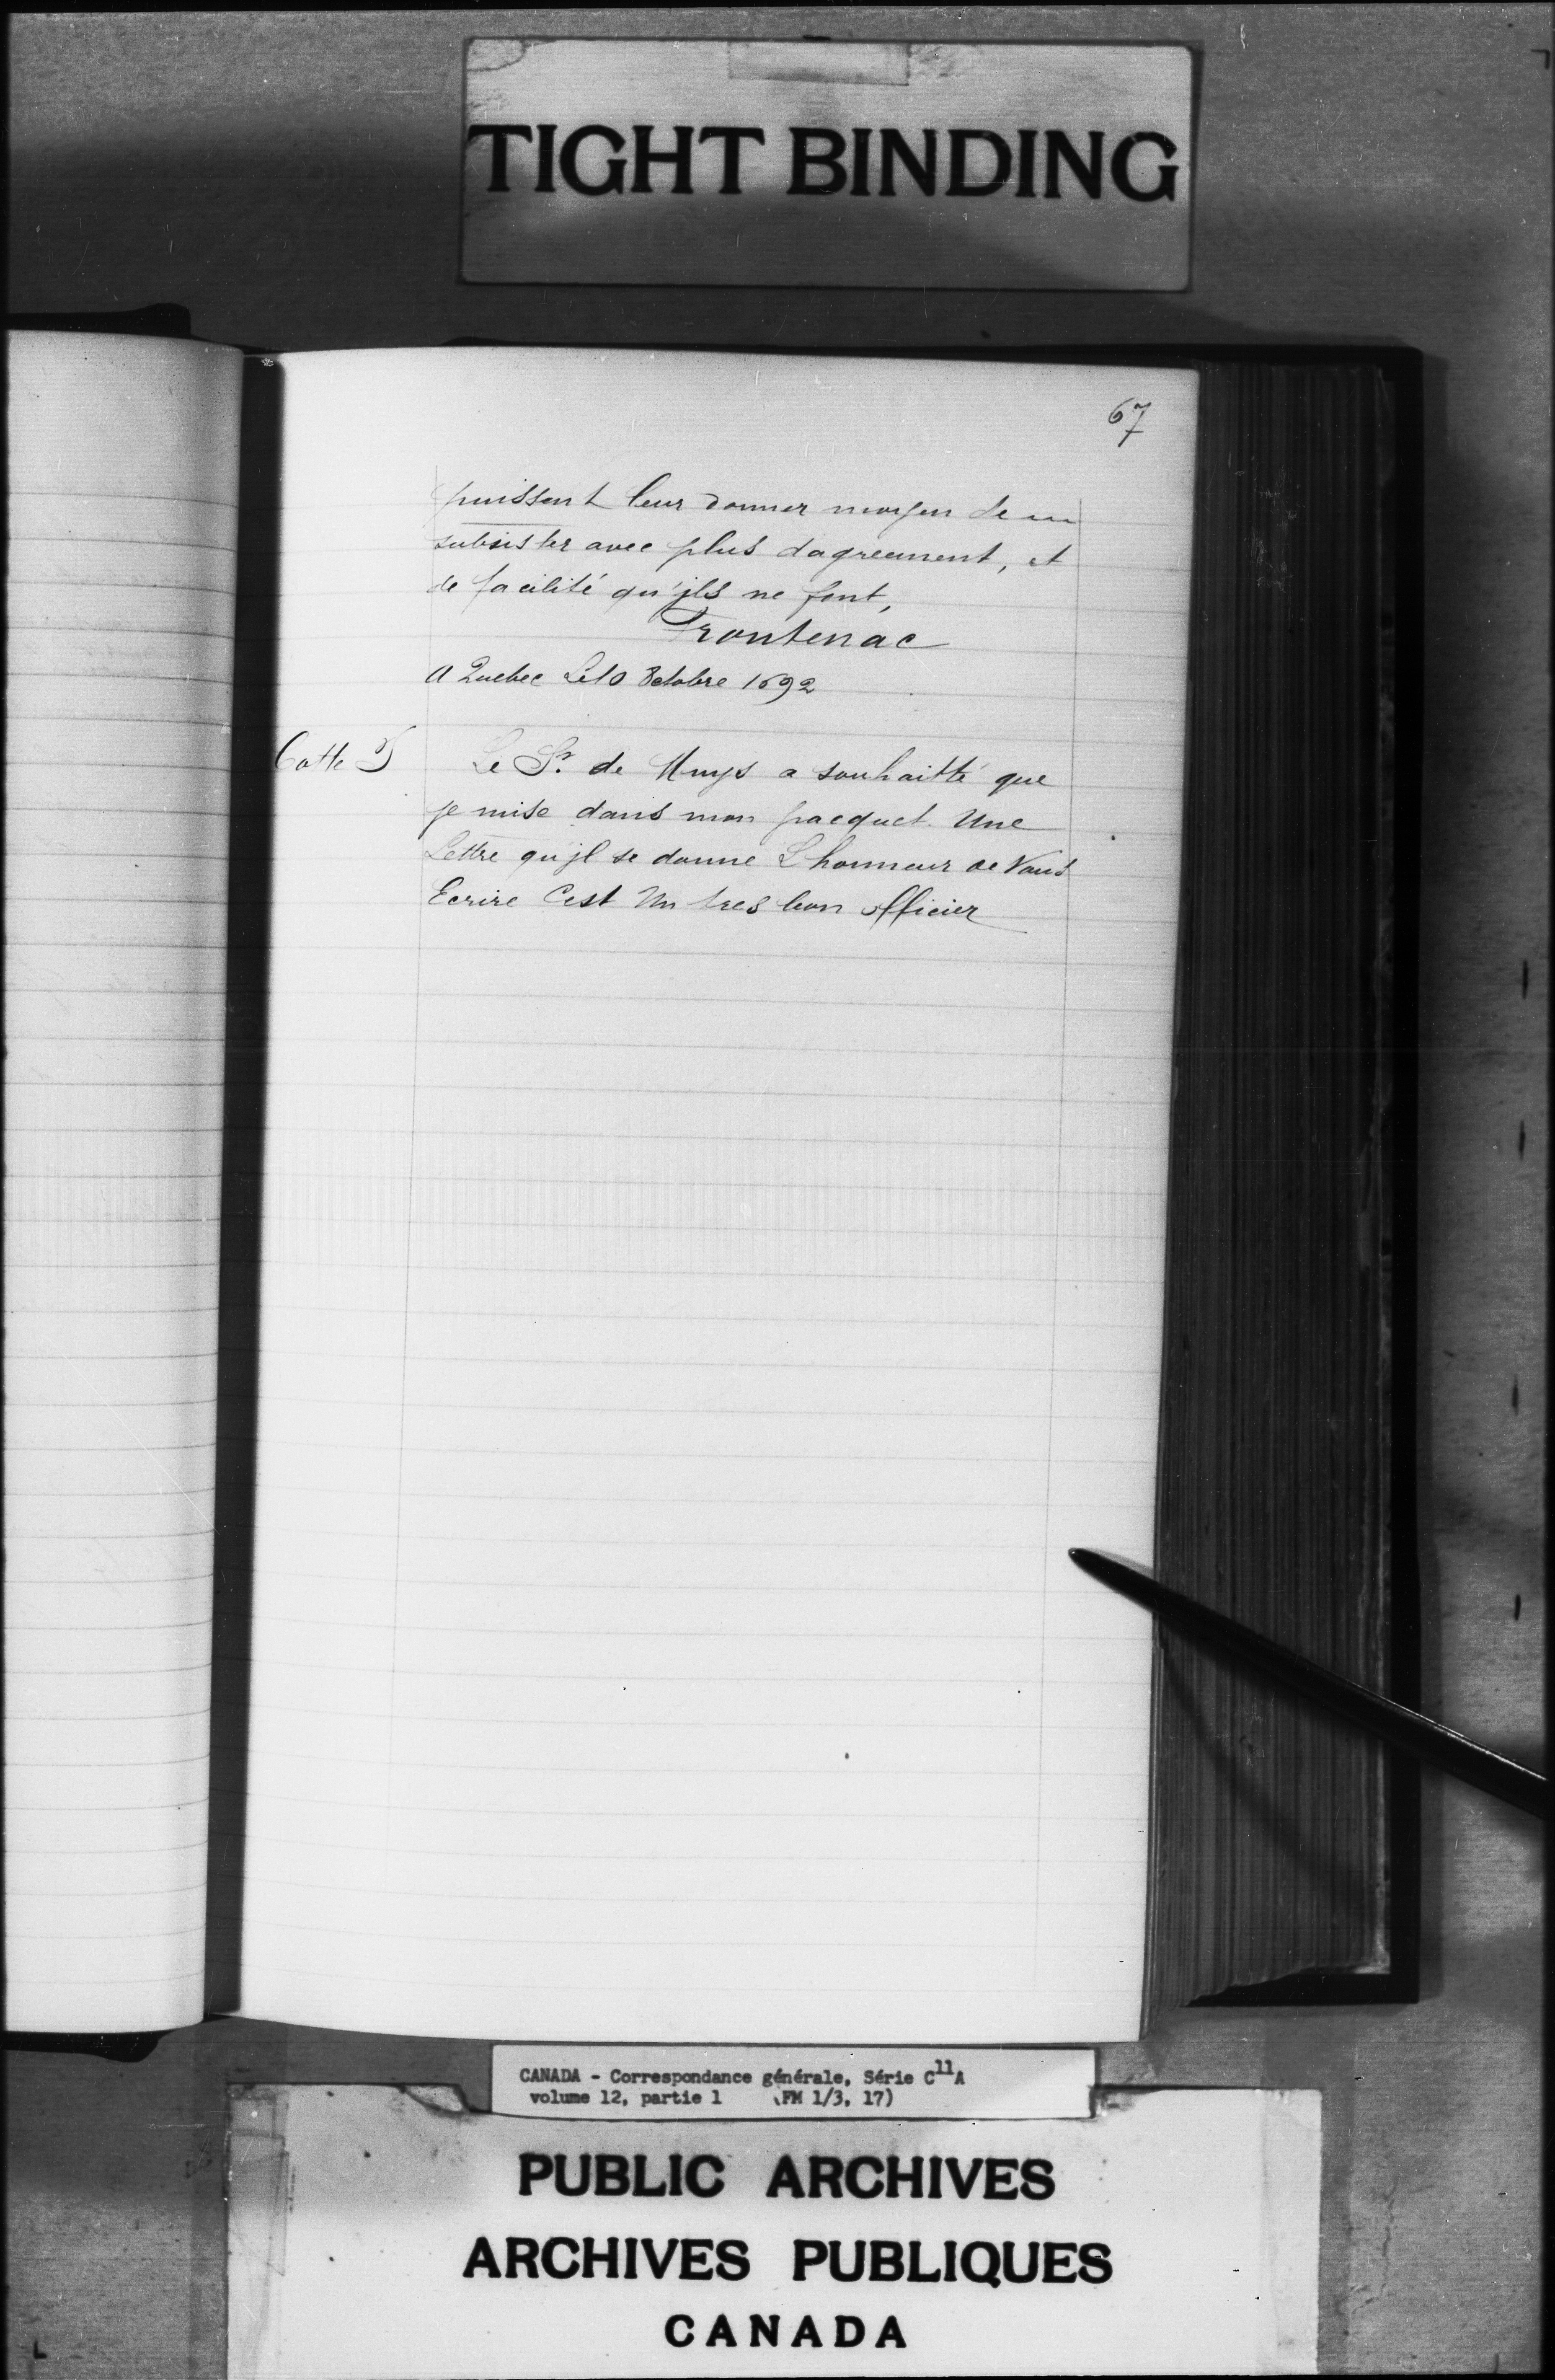 TIGHT BINDING
67
puissent leur donner moyen de
subsister avec plus dagreement, et
de facilité qu'jls ne font,
Frontenac
A Quebec Le 10 8ctobre 1692
Cotte
Le Sr. de Muys a souhaitté que
je mise dans mon pacquet Une
Lettre qu'jl se donne L'honneur de Vous
Ecrire C'est Un tres bon officier
CANADA - Correspondance générale, Série C11A
volume 12, partie 1 (FM 1/3, 17)
PUBLIC ARCHIVES
ARCHIVES PUBLIQUES
CANADA